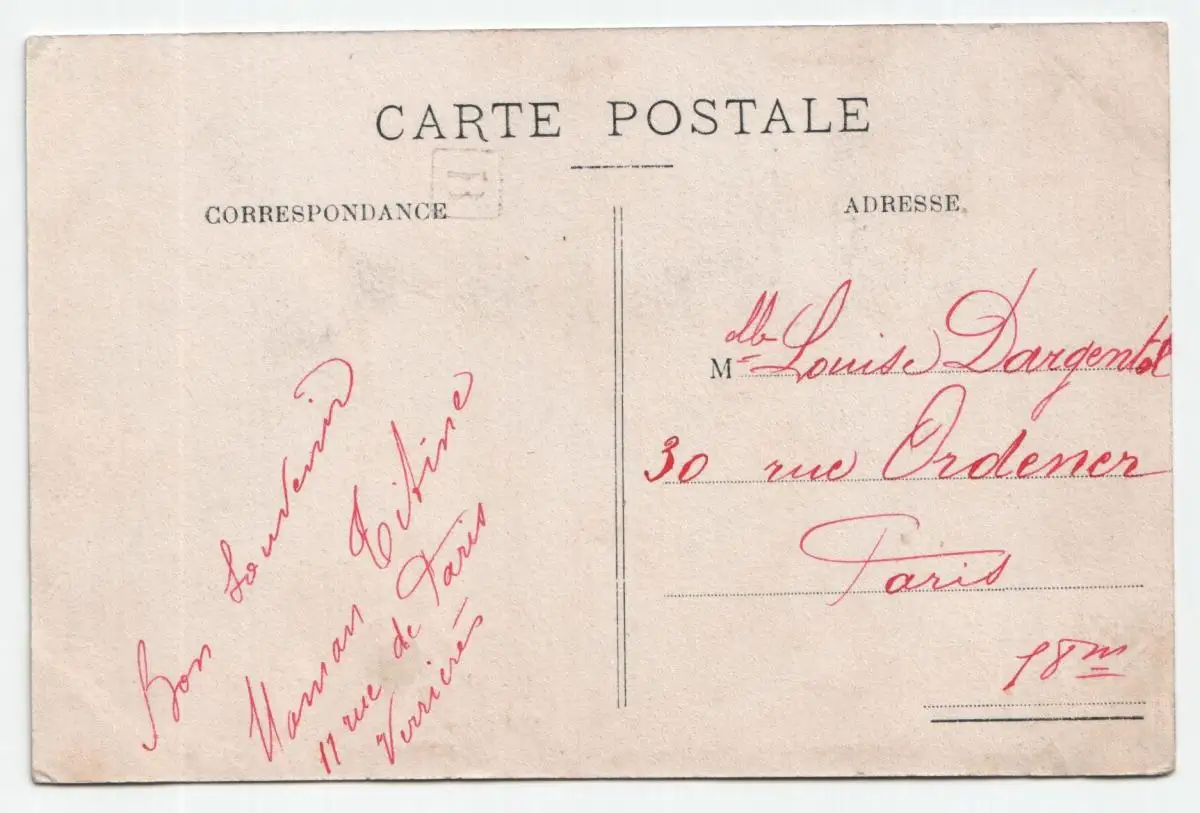 CARTE POSTALE
B
CORRESPONDANCE
ADRESSE
Bon Souvenir
Maman Titine
11 rue de Paris
Verrières
Mlle Louise
30 rue Ordener
Paris
18me